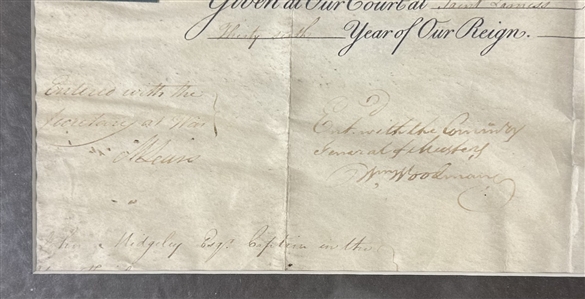 Given at Our Court at Saint James's
Thirty sixth Year of Our Reign.
Entered with the
Secretary at War
Ent. with the Comm'ry
General of Musters
Wm Woodman
Ridgeley Esqr. Captain in the